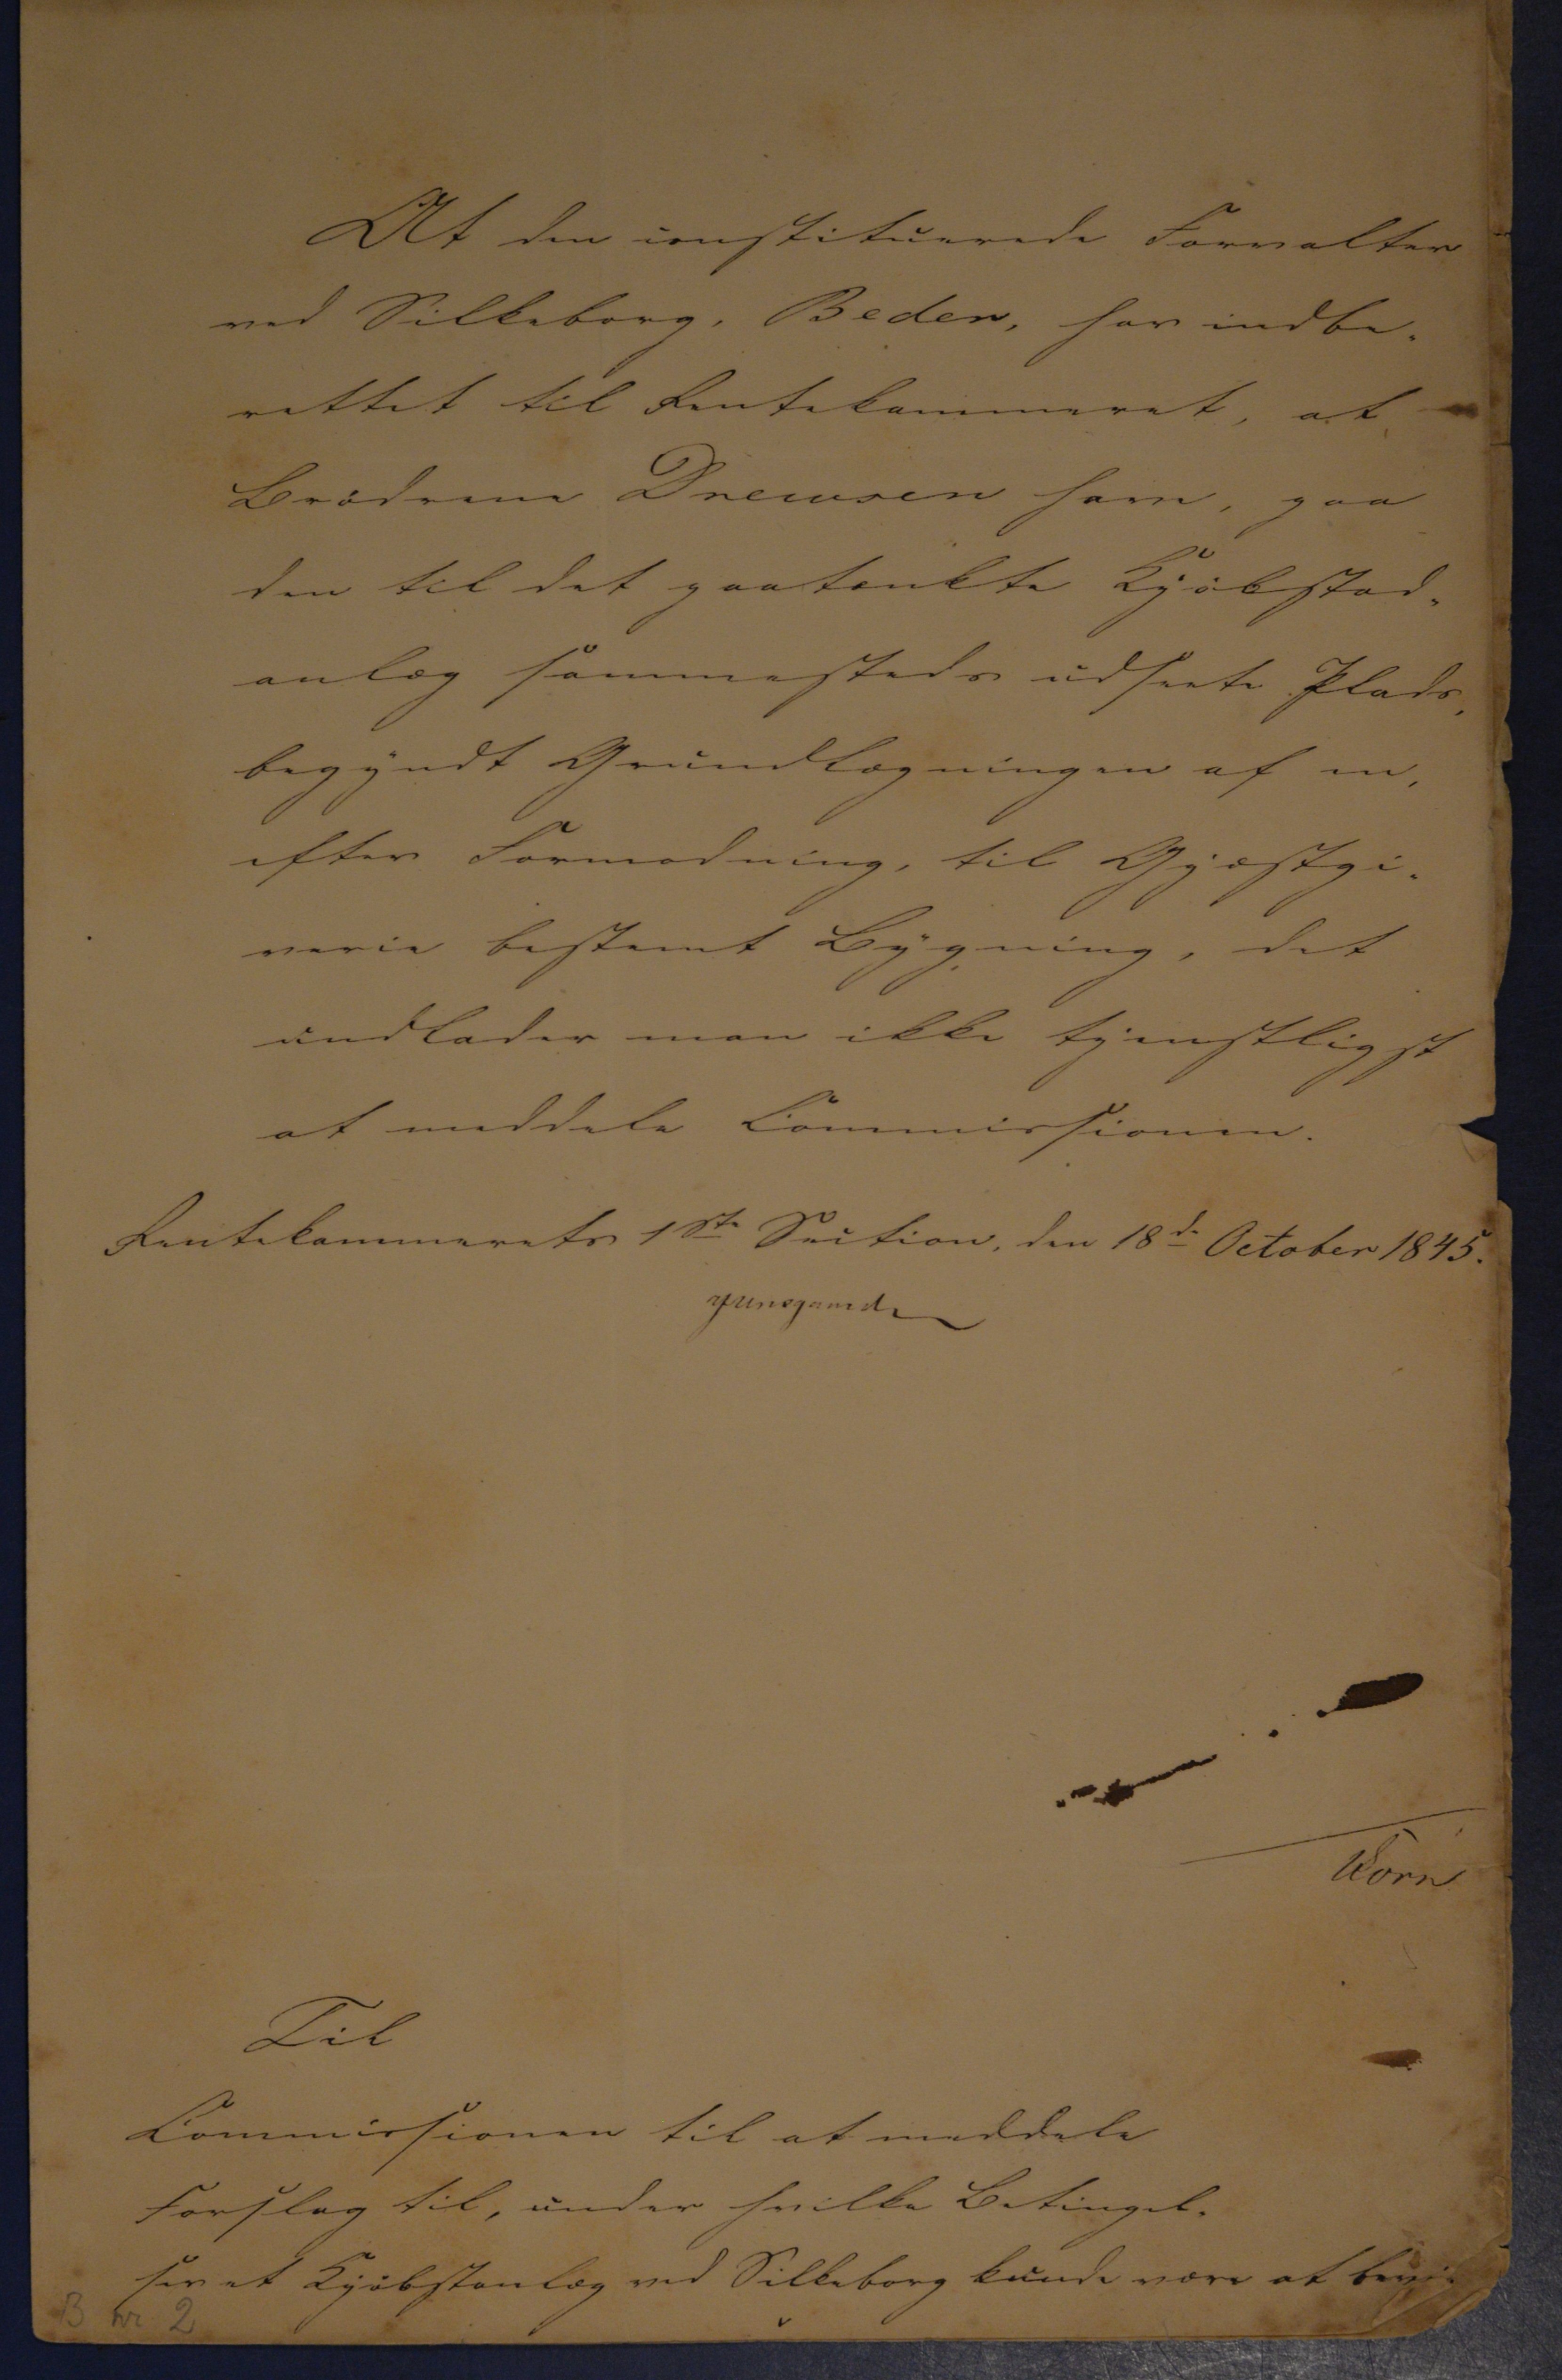 At den constituerede Forvalter
ved Silkeborg, Beder, har indbe-
rettet til Rentekammeret, at
Brødrene Drewsen have, paa
den til det paatænkte Kjøbstad-
anlæg sammesteds udseete Plads,
begyndt Grundlægningen af en,
efter Formodning, til Gjæstgi-
verie bestemt Bygning, det
undlader man ikke tjenstligst
at meddele Commissionen.
Rentekammerets 1ste Section, den 18de October 1845.
Korn
Til
Commissionen til at meddele
Forslag til, under hvilke Betingel-
ser et Kjøbstanlæg ved Silkeborg kunde være at bevir
B nr 2